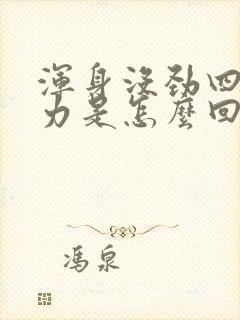 渾身沒勁四
力是怎麼回
馮泉